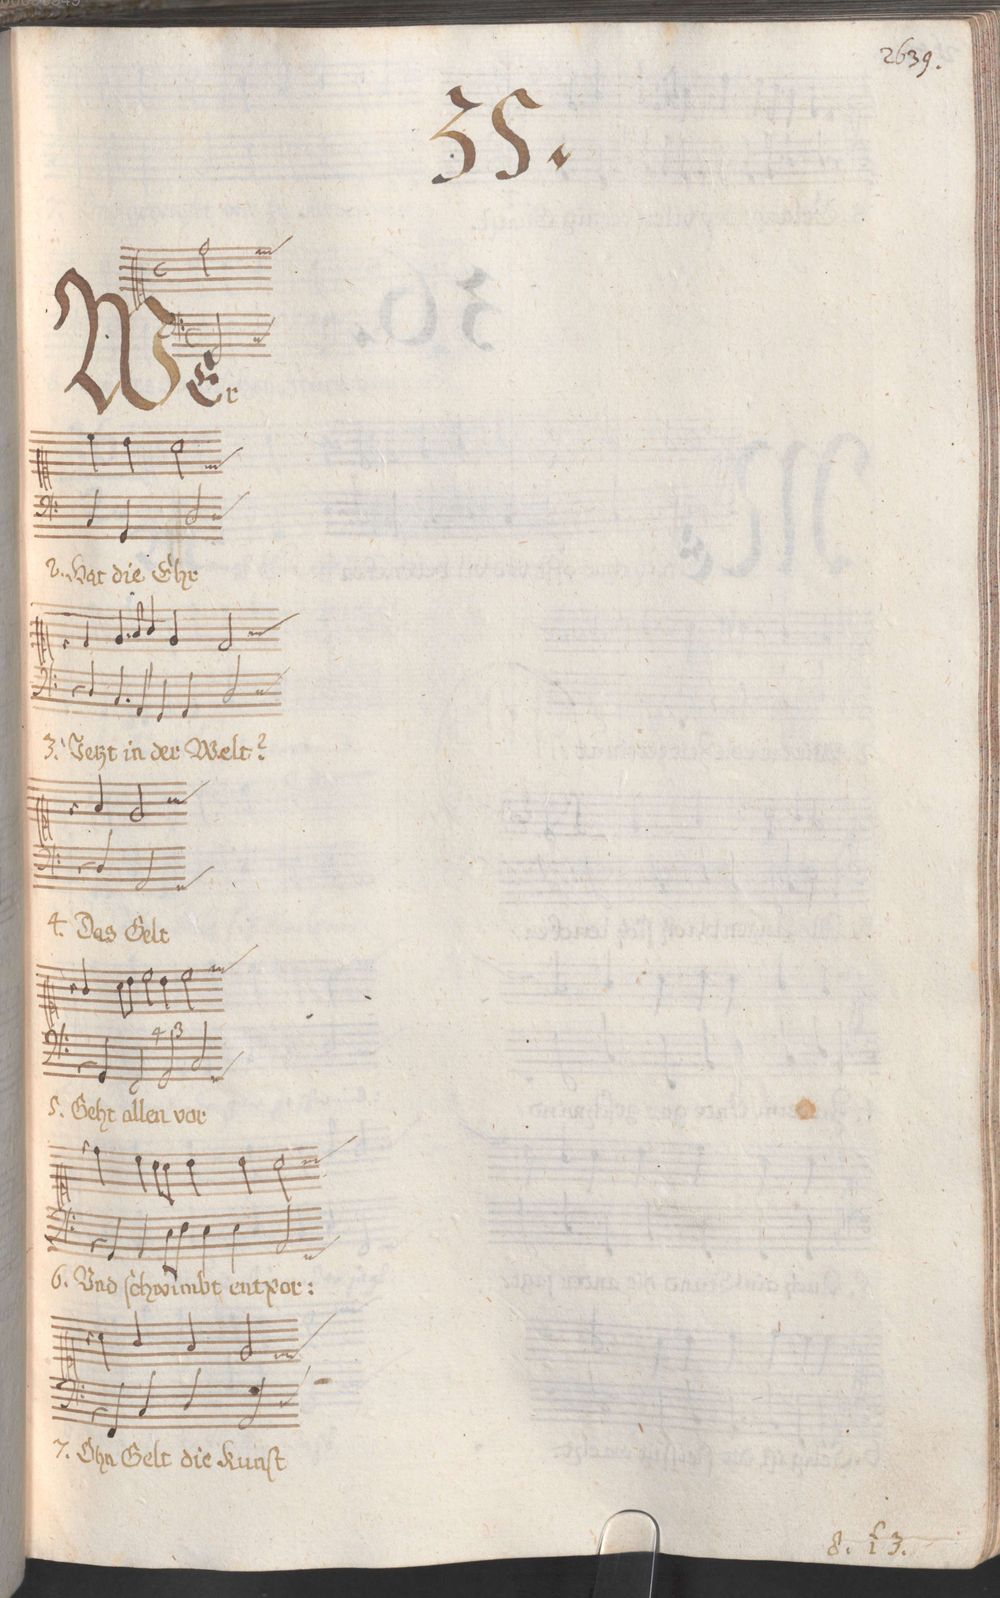 2639.
35.
WEr
2. Hat die Ehr
3. Jetzt in der Welt?
4. Das Gelt
4 3
5. Geht allen vor
6. Vnd schwimbt entpor:
7. Ohn Gelt die Kunst